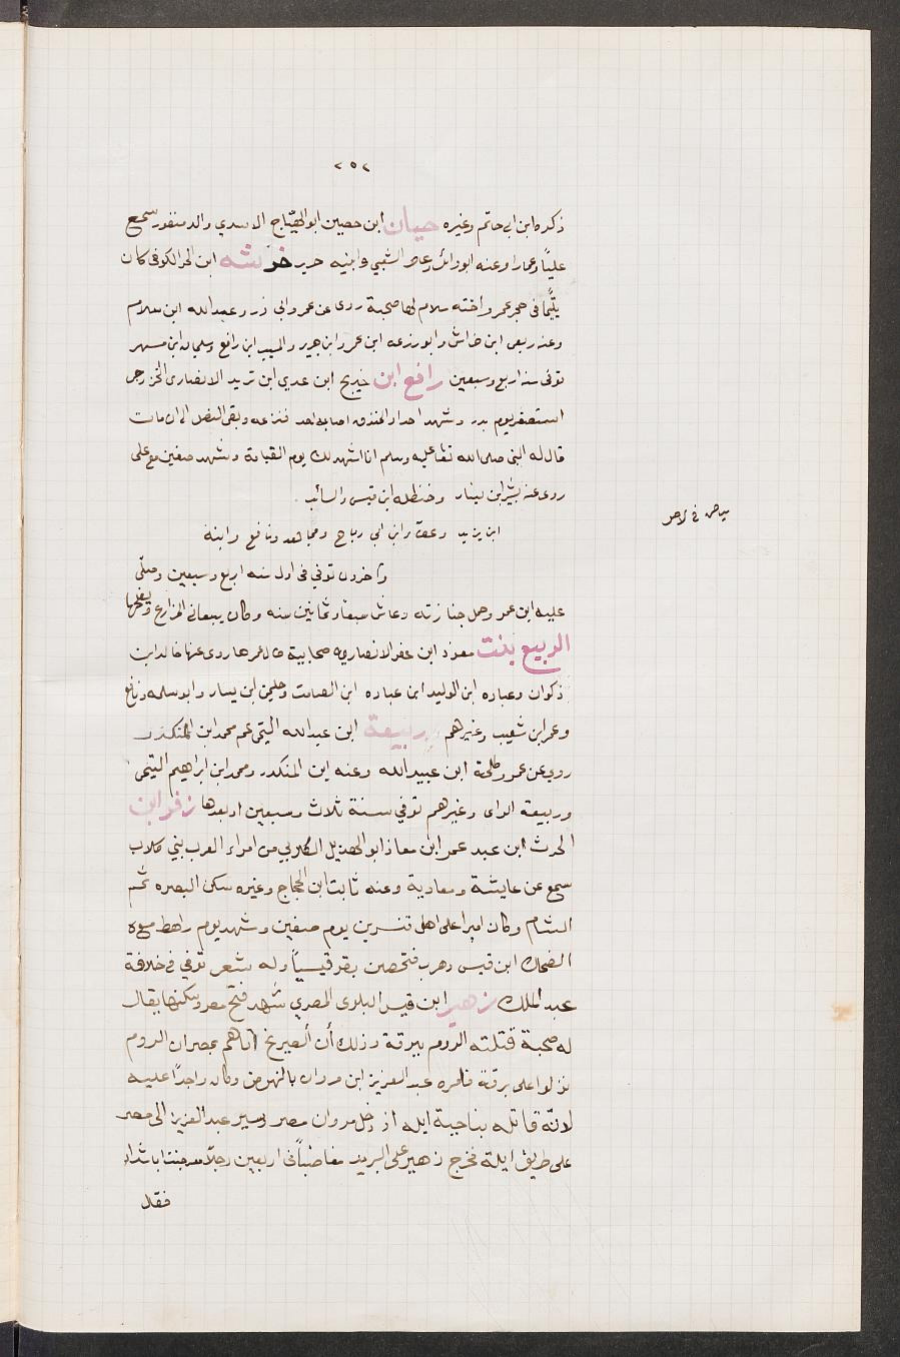 ٢٥٢
ذكره ابن ابي حاتم وغيره حيان ابن حصين ابو الهيّاج الاسدي والد منصور سمع
عليًا وعمارا وعنه ابو وائل وعامر الشبي وابنيه جرير خرشه ابن الحر الكوفى كان
يتيمًا فى حجر عمر واخته سلام لها صحبة روى عن عمر وابي ذر وعبد الله ابن سلام
وعنه ربعى ابن خراش وابو زرعه ابن عمر وابن جرير والمسيب ابن رافع وسليمان ابن مسهر
توفى سنة اربع وسبعين رافع ابن خديج ابن عدي ابن تريد الانصارى الخزرجى
استصغر يوم بدر وشهد احدا والخندق اصابه احد فنزعه وبقى النصل الى ان مات
قال له النبي صلى الله تعا عليه وسلم انا اشهد لك يوم القيامة وشهد صفين مع على
روى عنه بشير ابن يسار وحنظله ابن قيس والسائب
ابن يزيد وعطا وابن ابي رباح ومجاهد ونافع وابنة
واخرون توفي فى اول سنه اربع وسبعين وصلّى
عليه ابن عمر وحمل جنازته وعاش ستا وثمانين سنه وكان يبيعانى المزارع ويفلحها
الربيع بنت معوذ ابن عفر الانصاريه صحابية روى عنها خالد ابن
ذكوان وعباده ابن الوليد ابن عباده ابن الصامت وسليمن ابن يسار وابو سلمه ونافع
وعمر ابن شعيب وغيرهم ربيعة ابن عبد الله التيمى عم محمد ابن المنكدر
روى عن عمر وطلحة ابن عبيد الله وعنه ابن المنكدر ومحمد ابن ابراهيم التيمى
وربيعة الراى وغيرهم توفي سنة ثلاث وسبعين او بعدها زفر ابن
الحرث ابن عبد عمر ابن معاذ ابو الهذيل الكلابي من امراء العرب بني كلاب
سمع عن عايشة ومعاوية وعنه ثابت ابن الحجاج وغيره سكن البصره ثم
الشام وكان اميرا على اهل قنسرين يوم صفين وشهد يوم راهط مع
الضحاك ابن قيس وهرب فتحصن بقرقيسيا وله شعر توفي في خلافة
عبد الملك زهير ابن قيس البلوى المصري شهد فتح مصر وسكنها يقال
له صحبة قتلته الروم ببرقة وذلك أن الصريخ اتاهم بمصر ان الروم
نزلوا على برقة فامره عبد العزيز ابن مروان بالنهوض وكان واجدًا عليه
لانّه قاتله بناحية ايله اذ دخل مروان مصر وسير عبد العزيز الى مصر
على طريق ايلة فخرج زهير على البريد مغاضبًا فى اربعين رجلا
فقد